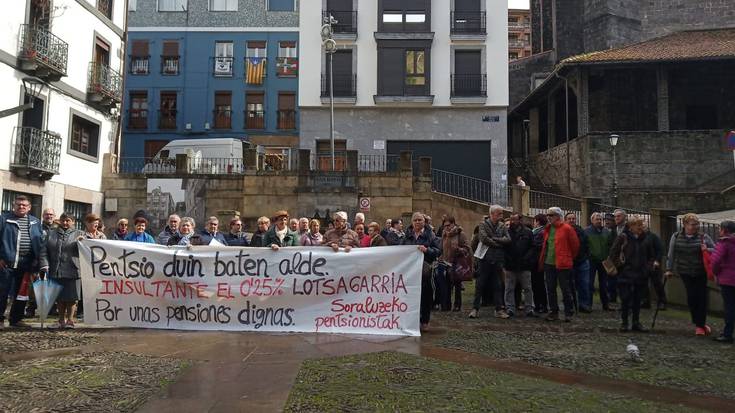 Pentsio duin baten alde.
INSULTANTE EL 0'25% LOTSAGARRIA
Por unas pensiones dignas.
Soraluzeko
pentsionistak